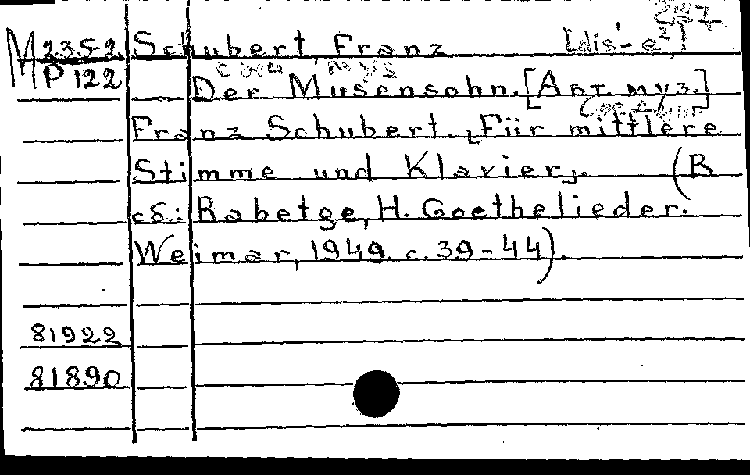 М 2352 Schubert, Franz [dis'-e²]
Р 122 Der Musensohn. [Авт. муз.]
Franz Schubert. Für mittlere
Stimme und Klavier. (В
сб.: Rabetge, H. Goethelieder.
Weimar, 1949. с. 39-44).
81922
81890